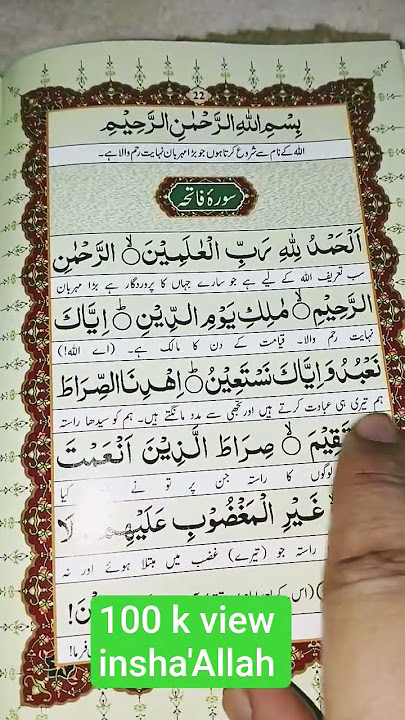 22
بِسْمِ اللهِ الرَّحْمٰنِ الرَّحِيْمِ
اللہ کے نام سے شروع کرتا ہوں جو بڑا مہربان نہایت رحم والا ہے۔
سورۂ فاتحہ
اَلْحَمْدُ لِلّٰهِ رَبِّ الْعٰلَمِيْنَ ۙ الرَّحْمٰنِ
سب تعریف اللہ کے لیے ہے جو سارے جہاں کا پروردگار ہے بڑا مہربان
الرَّحِيْمِ ۙ مٰلِكِ يَوْمِ الدِّيْنِ ؕ اِيَّاكَ
نہایت رحم والا۔ قیامت کے دن کا مالک ہے۔ (اے اللہ!)
نَعْبُدُ وَاِيَّاكَ نَسْتَعِيْنُ ؕ اِهْدِنَا الصِّرَاطَ
ہم تیری ہی عبادت کرتے ہیں اور تجھی سے مدد مانگتے ہیں۔ ہم کو سیدھا راستہ
صِرَاطَ الَّذِيْنَ اَنْعَمْتَ
لوگوں کا راستہ جن پر تو نے کیا
غَيْرِ الْمَغْضُوْبِ عَلَيْهِمْ لَا
راستہ جو (تیرے) غضب میں مبتلا ہوئے اور نہ
100 k view
insha'Allah